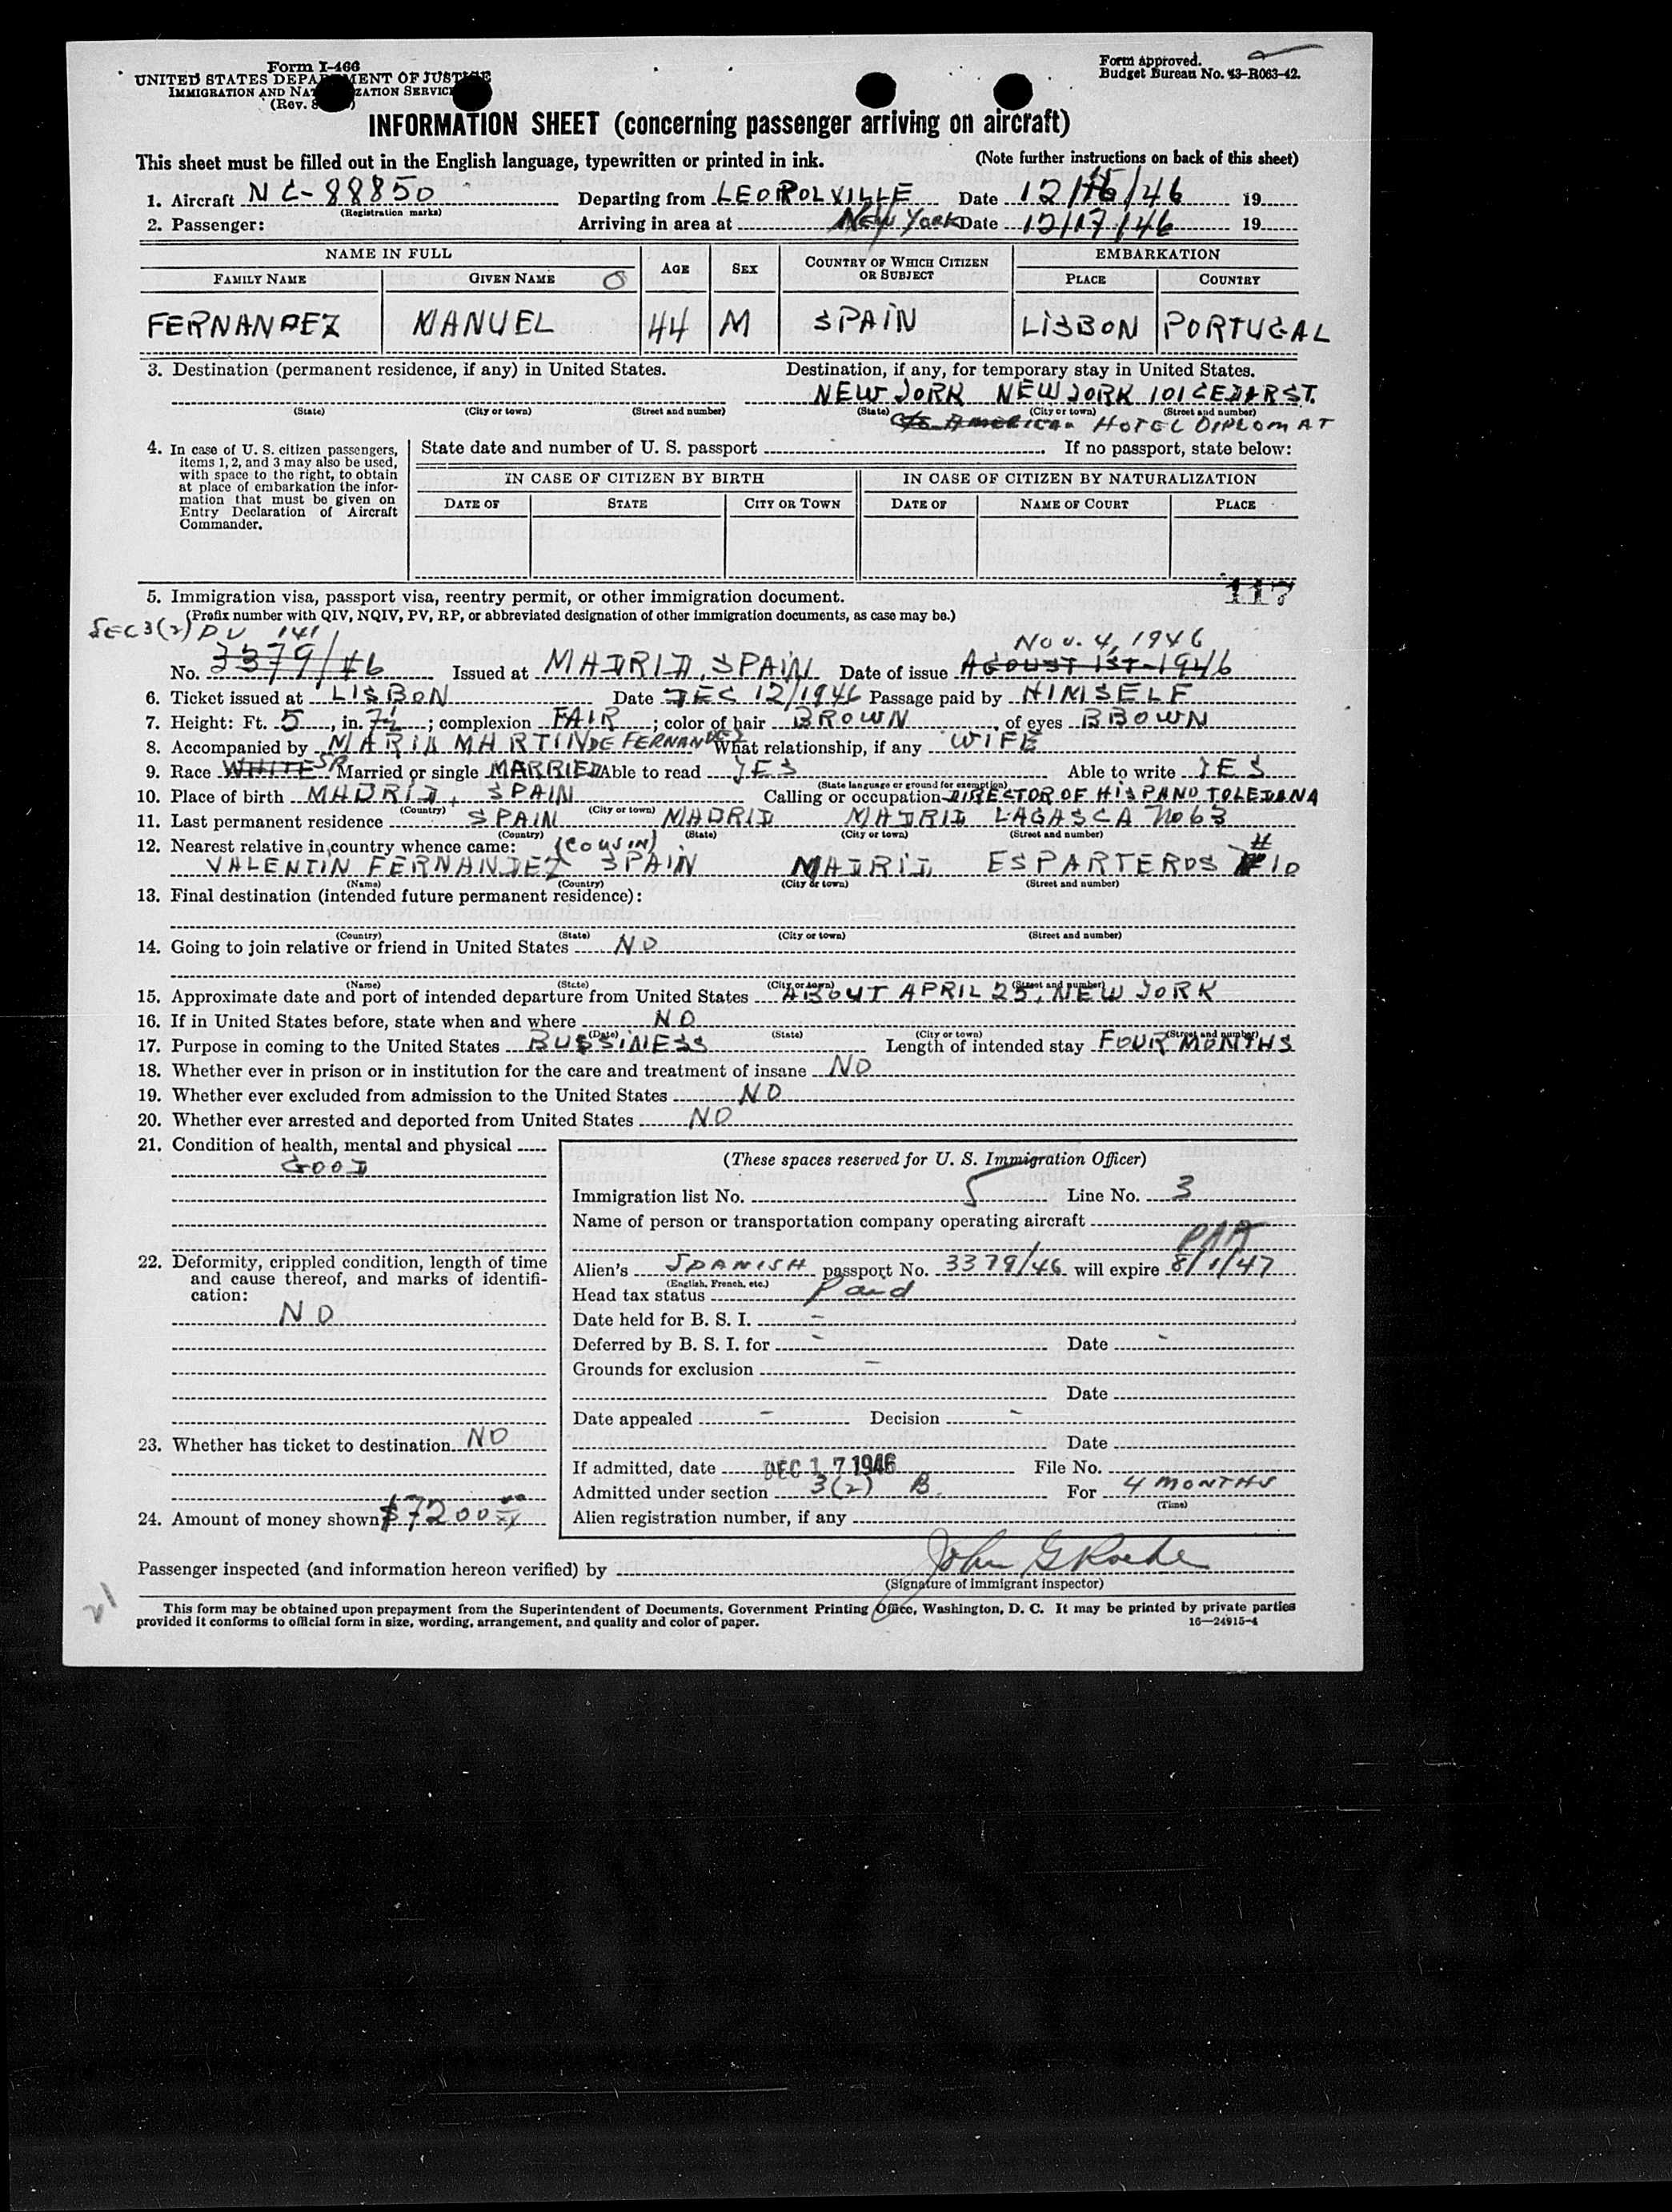 Form I-466
UNITED STATES DEPARTMENT OF JUSTICE
IMMIGRATION AND NATURALIZATION SERVICE
(Rev.
Form approved.
Budget Bureau No. 43-R063-42.
INFORMATION SHEET (concerning passenger arriving on aircraft)
This sheet must be filled out in the English language, typewritten or printed in ink. (Note further instructions on back of this sheet)
1. Aircraft NC-88850 Departing from LEOPOLVILLE Date 12/15/46 19
(Registration marks)
2. Passenger: Arriving in area at New York Date 12/17/46 19
NAME IN FULL AGE SEX COUNTRY OF WHICH CITIZEN OR SUBJECT EMBARKATION
FAMILY NAME GIVEN NAME PLACE COUNTRY
FERNANDEZ MANUEL 44 M SPAIN LISBON PORTUGAL
3. Destination (permanent residence, if any) in United States. Destination, if any, for temporary stay in United States.
NEW JORK NEW JORK 101 CEDAR ST.
(State) (City or town) (Street and number) (State) (City or town) (Street and number)
c/o American HOTEL DIPLOMAT
4. In case of U. S. citizen passengers, items 1, 2, and 3 may also be used, with space to the right, to obtain at place of embarkation the information that must be given on Entry Declaration of Aircraft Commander.
State date and number of U. S. passport If no passport, state below:
IN CASE OF CITIZEN BY BIRTH IN CASE OF CITIZEN BY NATURALIZATION
DATE OF STATE CITY OR TOWN DATE OF NAME OF COURT PLACE
117
5. Immigration visa, passport visa, reentry permit, or other immigration document.
(Prefix number with QIV, NQIV, PV, RP, or abbreviated designation of other immigration documents, as case may be.)
SEC 3(2) PV 141 Nov. 4, 1946
No. 3379/46 Issued at MADRID, SPAIN Date of issue AGOUST 1ST-1946
6. Ticket issued at LISBON Date DEC 12/1946 Passage paid by HIMSELF
7. Height: Ft. 5, in. 7½; complexion FAIR; color of hair BROWN, of eyes BROWN
8. Accompanied by MARIA MARTIN DE FERNANDEZ What relationship, if any WIFE
9. Race WHITE SP Married or single MARRIED Able to read YES Able to write YES
(State language or ground for exemption)
10. Place of birth MADRID, SPAIN Calling or occupation DIRECTOR OF HISPANO TOLEDANA
(Country) (City or town)
11. Last permanent residence SPAIN MADRID MADRID LAGASCA No 63
(Country) (State) (City or town) (Street and number)
12. Nearest relative in country whence came: (COUSIN)
VALENTIN FERNANDEZ SPAIN MADRID ESPARTEROS #10
(Name) (Country) (City or town) (Street and number)
13. Final destination (intended future permanent residence):
(Country) (State) (City or town) (Street and number)
14. Going to join relative or friend in United States NO
(Name) (State) (City or town) (Street and number)
15. Approximate date and port of intended departure from United States ABOUT APRIL 25, NEW JORK
16. If in United States before, state when and where NO
(Date) (State) (City or town) (Street and number)
17. Purpose in coming to the United States BUSSINESS Length of intended stay FOUR MONTHS
18. Whether ever in prison or in institution for the care and treatment of insane NO
19. Whether ever excluded from admission to the United States NO
20. Whether ever arrested and deported from United States NO
21. Condition of health, mental and physical
GOOD
22. Deformity, crippled condition, length of time and cause thereof, and marks of identification:
NO
23. Whether has ticket to destination NO
24. Amount of money shown $7200 00/xx
(These spaces reserved for U. S. Immigration Officer)
Immigration list No. 5 Line No. 3
Name of person or transportation company operating aircraft
PAA
Alien's SPANISH passport No. 3379/46 will expire 8/1/47
(English, French, etc.)
Head tax status Paid
Date held for B. S. I. -
Deferred by B. S. I. for - Date -
Grounds for exclusion -
Date
Date appealed - Decision -
Date
If admitted, date DEC 17 1946 File No.
Admitted under section 3(2) B. For 4 MONTHS
(Time)
Alien registration number, if any
Passenger inspected (and information hereon verified) by John G
(Signature of immigrant inspector)
21
This form may be obtained upon prepayment from the Superintendent of Documents, Government Printing Office, Washington, D. C. It may be printed by private parties
provided it conforms to official form in size, wording, arrangement, and quality and color of paper. 16—24915-4